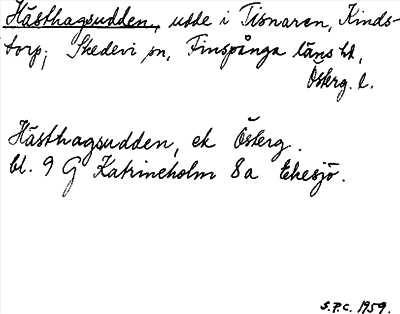 Hästhagsudden, udde i Tisnaren, Kinds-
torp, Skedevi sn, Finspånga läns hd,
Österg. l.
Hästhagsudden, ek Österg.
bl. 9 G Katrineholm 8a Ekesjö.
S.P.C. 1959.